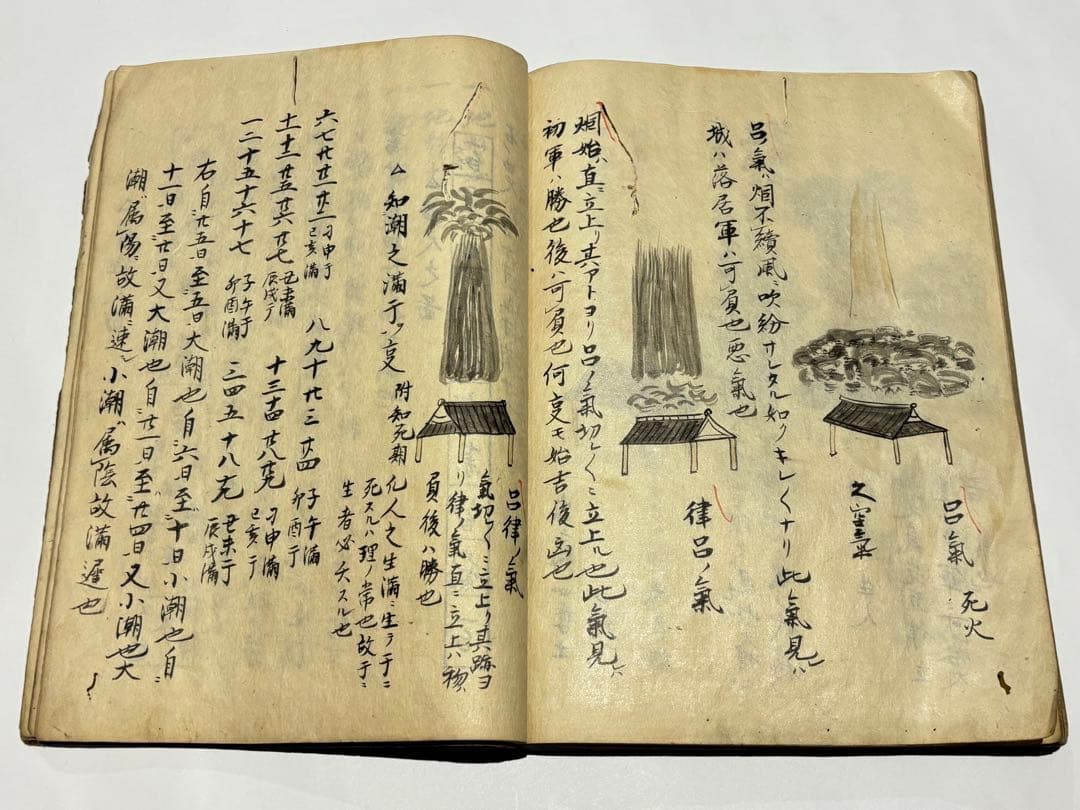 呂氣 死火
之
呂氣ハ烟不續風ニ吹紛サレタル如クキレ〱ナリ此氣見ハ
城ハ落居軍ハ可負也悪氣也
律呂ノ氣
烟始ハ直ニ立上リ其アトヨリ呂ノ氣切〱ニ立上ル也此氣見ハ
初軍ハ勝也後ハ可負也何事モ始吉後凶也
呂律ノ氣
氣切〱ニ立上リ其跡ヨ
リ律ノ氣直ニ立上ハ初
負後ハ勝也
△知潮之満干ヲ事 附知死期
凡人之生満ニ生ラ干ニ
死スルハ理ノ常也故干ニ
生者必夭スル也
六七廿廿一廿二 寅申干 巳亥満 八九十廿三廿四 子午満 卯酉干
十一十二廿五廿六廿七 丑未満 辰戌干 十三十四廿八廿九 寅申満 巳亥干
一二十五十六十七 子午干 卯酉満 三四五十八十九 丑未干 辰戌満
右自廿五日至五日大潮也自六日至十日小潮也自
十一日至廿日又大潮也自廿一日至廿四日又小潮也大
潮ハ属陽ニ故満ニ速シ小潮ハ属陰故満遅也